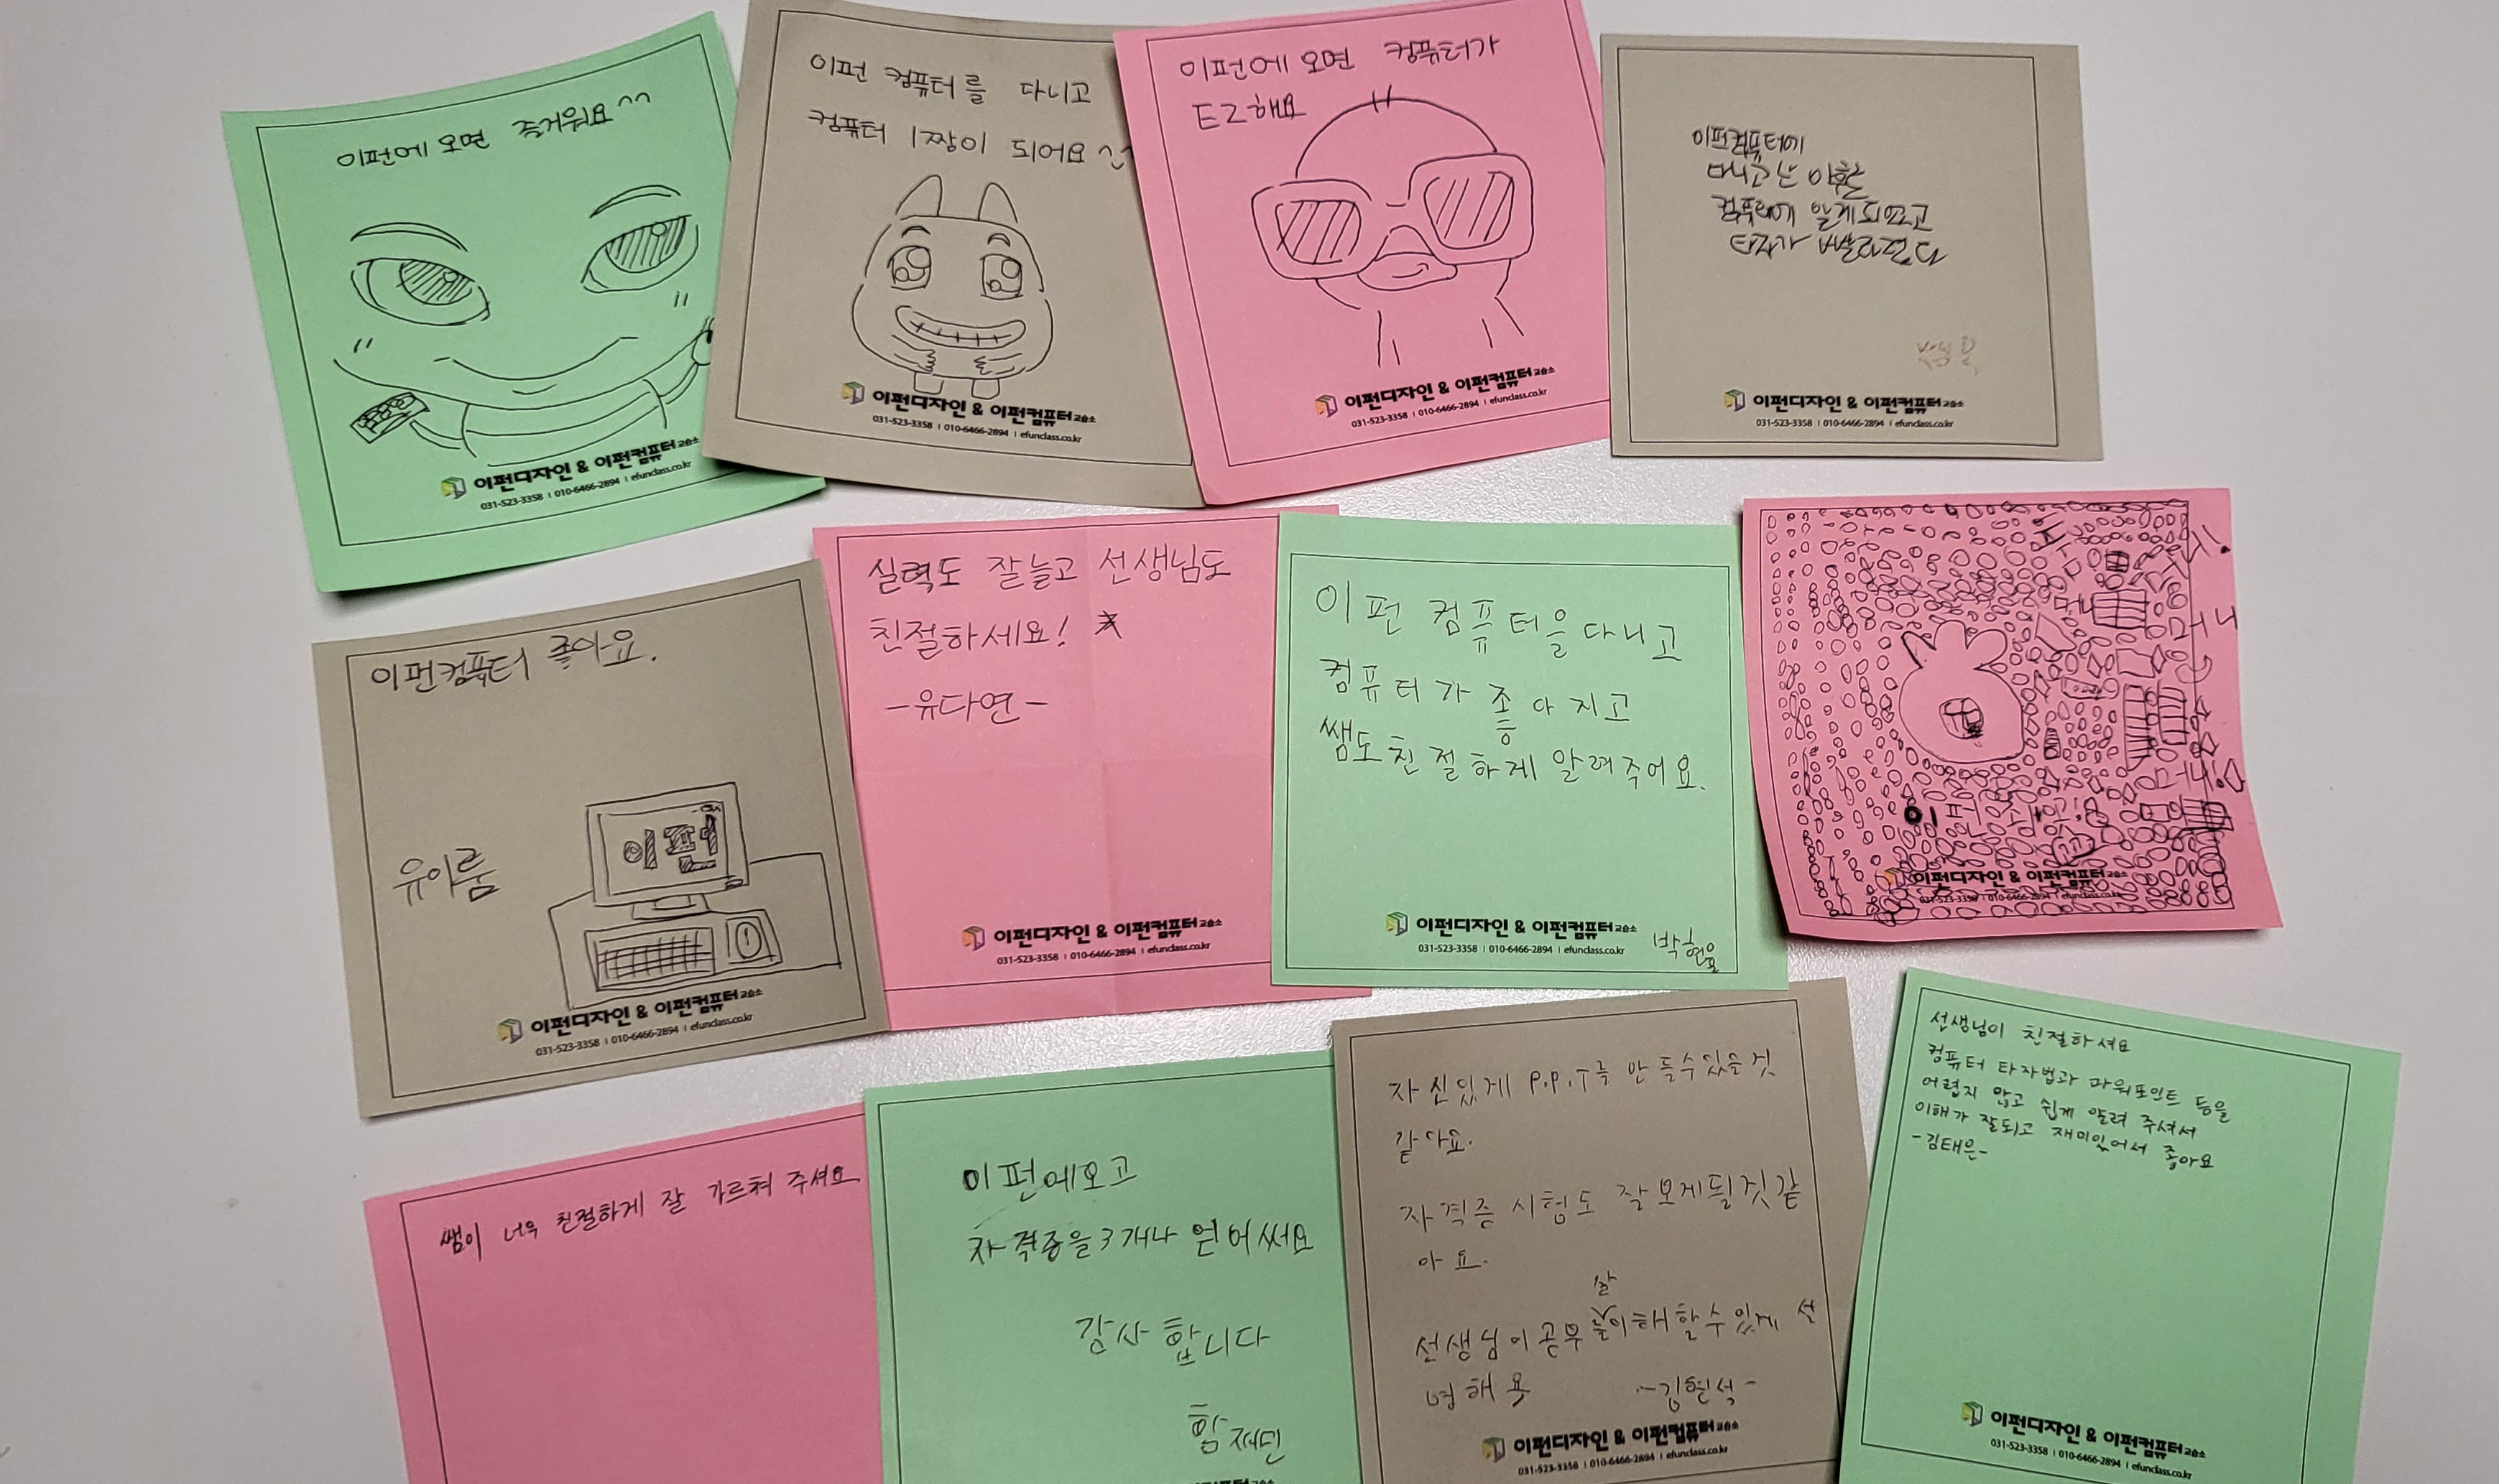 이펀에 오면 즐거워요^^
이펀디자인 & 이펀컴퓨터교습소
031-523-3358 | 010-6466-2894 | efunclass.co.kr
이펀 컴퓨터를 다니고
컴퓨터 1짱이 되어요^^
이펀디자인 & 이펀컴퓨터교습소
031-523-3358 | 010-6466-2894 | efunclass.co.kr
이펀에 오면 컴퓨터가
EZ해요
이펀디자인 & 이펀컴퓨터교습소
031-523-3358 | 010-6466-2894 | efunclass.co.kr
이펀컴퓨터에
다니고 난 이후로
컴퓨터에 알게되었고
타자가 빨라졌다
이펀디자인 & 이펀컴퓨터교습소
031-523-3358 | 010-6466-2894 | efunclass.co.kr
이펀컴퓨터 좋아요.
유아룸
이펀
이펀디자인 & 이펀컴퓨터교습소
031-523-3358 | 010-6466-2894 | efunclass.co.kr
실력도 잘늘고 선생님도
친절하세요!
-유다연-
이펀디자인 & 이펀컴퓨터교습소
031-523-3358 | 010-6466-2894 | efunclass.co.kr
이펀 컴퓨터을 다니고
컴퓨터가 좋아지고
쌤도 친절하게 알려주어요.
이펀디자인 & 이펀컴퓨터교습소
031-523-3358 | 010-6466-2894 | efunclass.co.kr
박현용
이펀디자인 & 이펀컴퓨터교습소
031-523-3358 | 010-6466-2894 | efunclass.co.kr
쌤이 너무 친절하게 잘 가르쳐 주셔요
이펀에오고
자격증을 3개나 얻어써요
감사합니다
함재민
자신있게 P.P.T를 만들수있는것
같아요.
자격증 시험도 잘보게될것같
아요.
선생님이 공부를 잘 이해할수있게 설
명해용 -김현석-
이펀디자인 & 이펀컴퓨터교습소
031-523-3358 | 010-6466-2894 | efunclass.co.kr
선생님이 친절하셔요
컴퓨터 타자법과 파워포인트 등을
어렵지 않고 쉽게 알려 주셔서
이해가 잘되고 재미있어서 좋아요
-김태은-
이펀디자인 & 이펀컴퓨터교습소
031-523-3358 | 010-6466-2894 | efunclass.co.kr